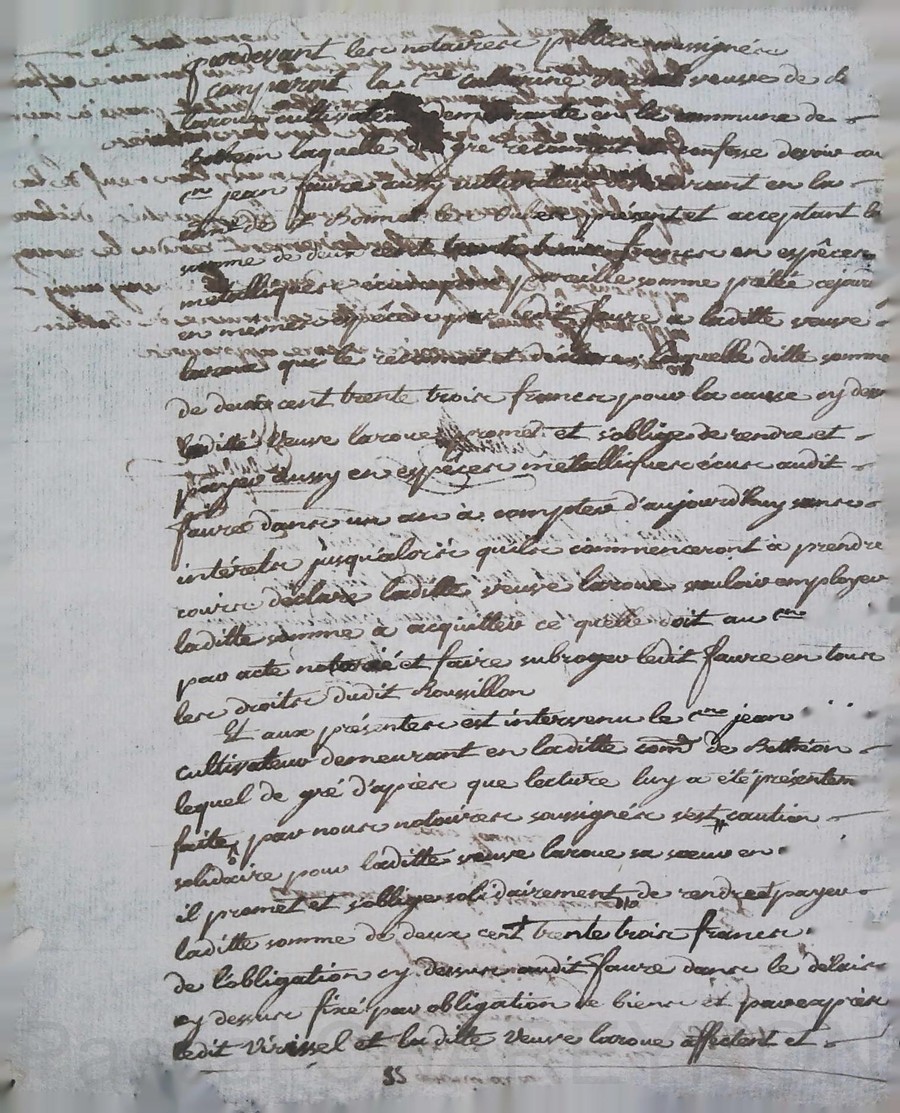 pardevant les notaires publics soussignés
comparoit la Cne Catherine veuve de
laroue cultivateur demeurante en la commune de
laquelle de gré reconnoit et confesse devoir au
cen jean faure aussy cultivateur demeurant en la
comne de St Bonnet les present et acceptant la
somme de deux cent trente trois francs en espèces
metalliques écus pareille somme prettée cejourd
en memes espèces par ledit faure a laditte veuve
laroue qui le reconnoit et declare laquelle ditte somme
de deux cent trente trois francs pour la cause cy dessus
laditte veuve laroue promet et s'oblige de rendre et
payer aussy en espèces métalliques écus audit
faure dans un an a compter d'aujourd'huy sans
intérets jusqu'alors quils commenceront à prendre
cours déclare laditte veuve laroue vouloir employer
laditte somme a acquitter ce quelle doit au cen
par acte notarié et faire subroger ledit faure en tous
les droits dudit Roussillon
Et aux présentes est intervenu le cen jean
cultivateur demeurant en laditte comne de Bothéon
lequel de gré d'après que lecture luy a été présentem
faite par nous notaires soussignés s'est caution
solidaire pour laditte veuve laroue sa sœur en
il promet et s'oblige solidairement de rendre et payer
laditte somme de deux cent trente trois francs
de l'obligation cy dessus audit faure dans le délais
cy dessus fixé par obligation de biens et par exprès
ledit Virissel et laditte veuve laroue affectent et
55